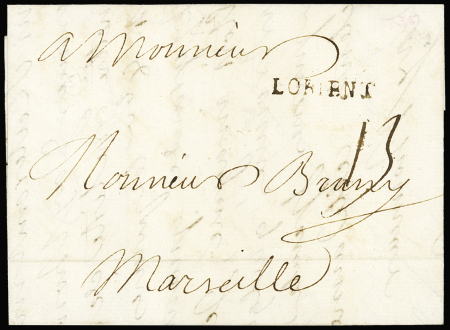 a Monsieur
LORIENT
13
Monsieur Bruny
Marseille